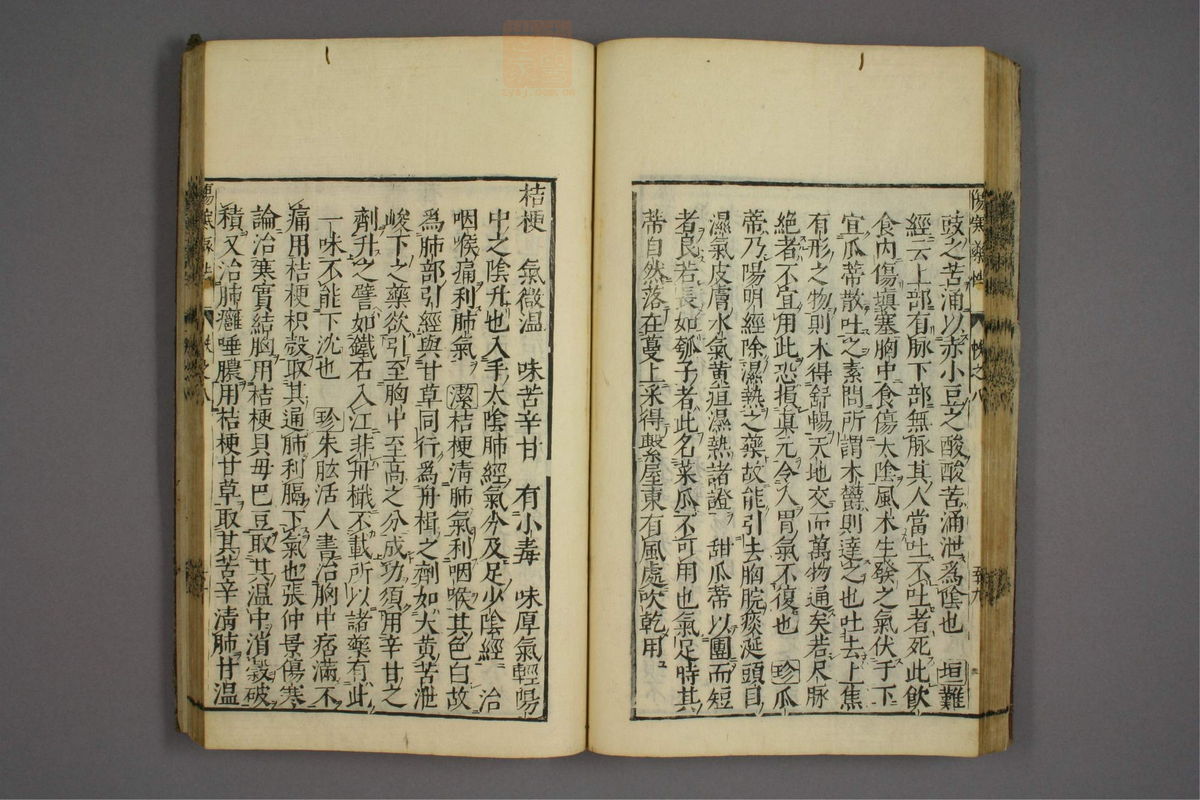 豉之苦涌以赤小豆之酸酸苦涌泄爲陰也 垣難
經云上部有脉下部無脉其人當吐不吐者死此飲
食內傷塡塞胸中食傷太陰風木生發之氣伏于下
宜瓜蒂散吐之素問所謂木欝則達之也吐去上焦
有形之物則木得舒暢天地交而萬物通矣若尺脉
絶者不宜用此恐損眞元令人胃氣不復也 珍瓜
蒂乃陽明經除濕熱之藥故能引去胸脘痰涎頭目
濕氣皮膚水氣黃疸濕熱諸證 甜瓜蒂以團而短
者良若長如瓠子者此名菜瓜不可用也氣足時其
蒂自然落在蔓上采得繫屋東有風處吹乾用
桔梗 氣微温 味苦辛甘 有小毒 味厚氣輕陽
中之陰升也入手太陰肺經氣分及足少陰經 治
咽喉痛利肺氣 潔桔梗淸肺氣利咽喉其色白故
爲肺部引經與甘草同行爲舟楫之劑如大黃苦泄
峻下之藥欲引至胸中至高之分成功須用辛甘之
劑升之譬如鐵石入江非舟檝不載所以諸藥有此
一味不能下沈也 珍朱肱活人書治胸中痞滿不
痛用桔梗枳殼取其通肺利膈下氣也張仲景傷寒
論治寒實結胸用桔梗貝毋巴豆取其温中消穀破
積又治肺癰唾膿用桔梗甘草取其苦辛淸肺甘温